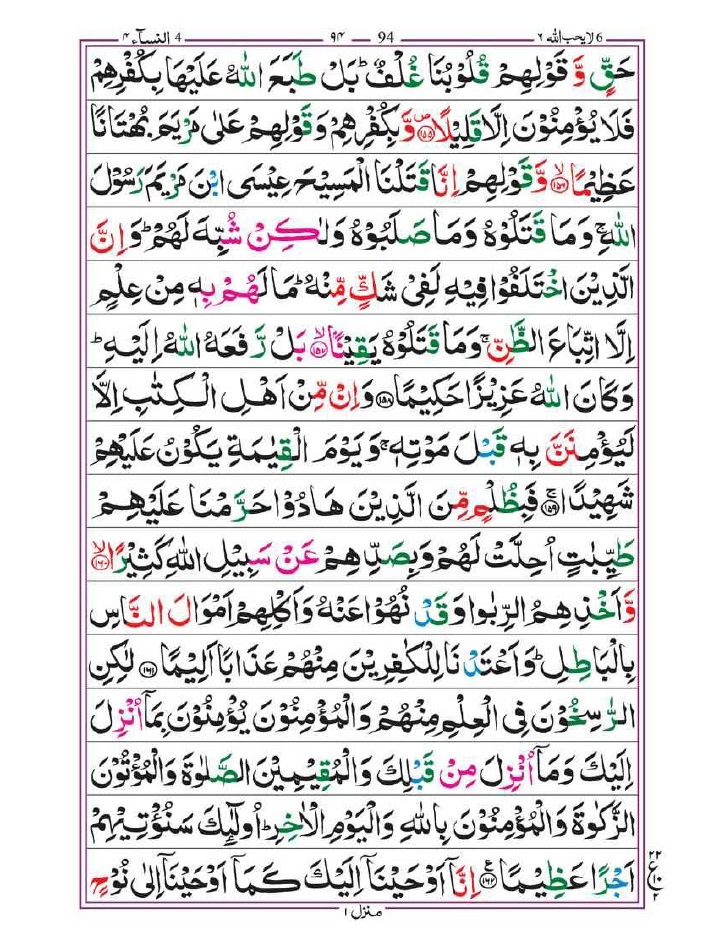 6 لا یحب اللہ ۶ 94 — ۹۴ 4 النسآء ۴
حَقٍّ وَّ قَوْلِهِمْ قُلُوْبُنَا غُلْفٌ ؕ بَلْ طَبَعَ اللّٰهُ عَلَیْهَا بِكُفْرِهِمْ
فَلَا یُؤْمِنُوْنَ اِلَّا قَلِیْلًا ۪﴿۱۵۵﴾ وَّ بِكُفْرِهِمْ وَ قَوْلِهِمْ عَلٰی مَرْیَمَ بُهْتَانًا
عَظِیْمًا ۙ﴿۱۵۶﴾ وَّ قَوْلِهِمْ اِنَّا قَتَلْنَا الْمَسِیْحَ عِیْسَی ابْنَ مَرْیَمَ رَسُوْلَ
اللّٰهِ ۚ وَ مَا قَتَلُوْهُ وَ مَا صَلَبُوْهُ وَ لٰكِنْ شُبِّهَ لَهُمْ ؕ وَ اِنَّ
الَّذِیْنَ اخْتَلَفُوْا فِیْهِ لَفِیْ شَكٍّ مِّنْهُ ؕ مَا لَهُمْ بِهٖ مِنْ عِلْمٍ
اِلَّا اتِّبَاعَ الظَّنِّ ۚ وَ مَا قَتَلُوْهُ یَقِیْنًۢا ۙ﴿۱۵۷﴾ بَلْ رَّفَعَهُ اللّٰهُ اِلَیْهِ ؕ
وَ كَانَ اللّٰهُ عَزِیْزًا حَكِیْمًا ﴿۱۵۸﴾ وَ اِنْ مِّنْ اَهْلِ الْكِتٰبِ اِلَّا
لَیُؤْمِنَنَّ بِهٖ قَبْلَ مَوْتِهٖ ۚ وَ یَوْمَ الْقِیٰمَةِ یَكُوْنُ عَلَیْهِمْ
شَهِیْدًا ۚ﴿۱۵۹﴾ فَبِظُلْمٍ مِّنَ الَّذِیْنَ هَادُوْا حَرَّمْنَا عَلَیْهِمْ
طَیِّبٰتٍ اُحِلَّتْ لَهُمْ وَ بِصَدِّهِمْ عَنْ سَبِیْلِ اللّٰهِ كَثِیْرًا ۙ﴿۱۶۰﴾
وَّ اَخْذِهِمُ الرِّبٰوا وَ قَدْ نُهُوْا عَنْهُ وَ اَكْلِهِمْ اَمْوَالَ النَّاسِ
بِالْبَاطِلِ ؕ وَ اَعْتَدْنَا لِلْكٰفِرِیْنَ مِنْهُمْ عَذَابًا اَلِیْمًا ﴿۱۶۱﴾ لٰكِنِ
الرّٰسِخُوْنَ فِی الْعِلْمِ مِنْهُمْ وَ الْمُؤْمِنُوْنَ یُؤْمِنُوْنَ بِمَاۤ اُنْزِلَ
اِلَیْكَ وَ مَاۤ اُنْزِلَ مِنْ قَبْلِكَ وَ الْمُقِیْمِیْنَ الصَّلٰوةَ وَ الْمُؤْتُوْنَ
الزَّكٰوةَ وَ الْمُؤْمِنُوْنَ بِاللّٰهِ وَ الْیَوْمِ الْاٰخِرِ ؕ اُولٰٓىِٕكَ سَنُؤْتِیْهِمْ
اَجْرًا عَظِیْمًا ﴿۱۶۲﴾ اِنَّاۤ اَوْحَیْنَاۤ اِلَیْكَ كَمَاۤ اَوْحَیْنَاۤ اِلٰی نُوْحٍ
۲۲ ع ۱۰ ۲
منزل ۱